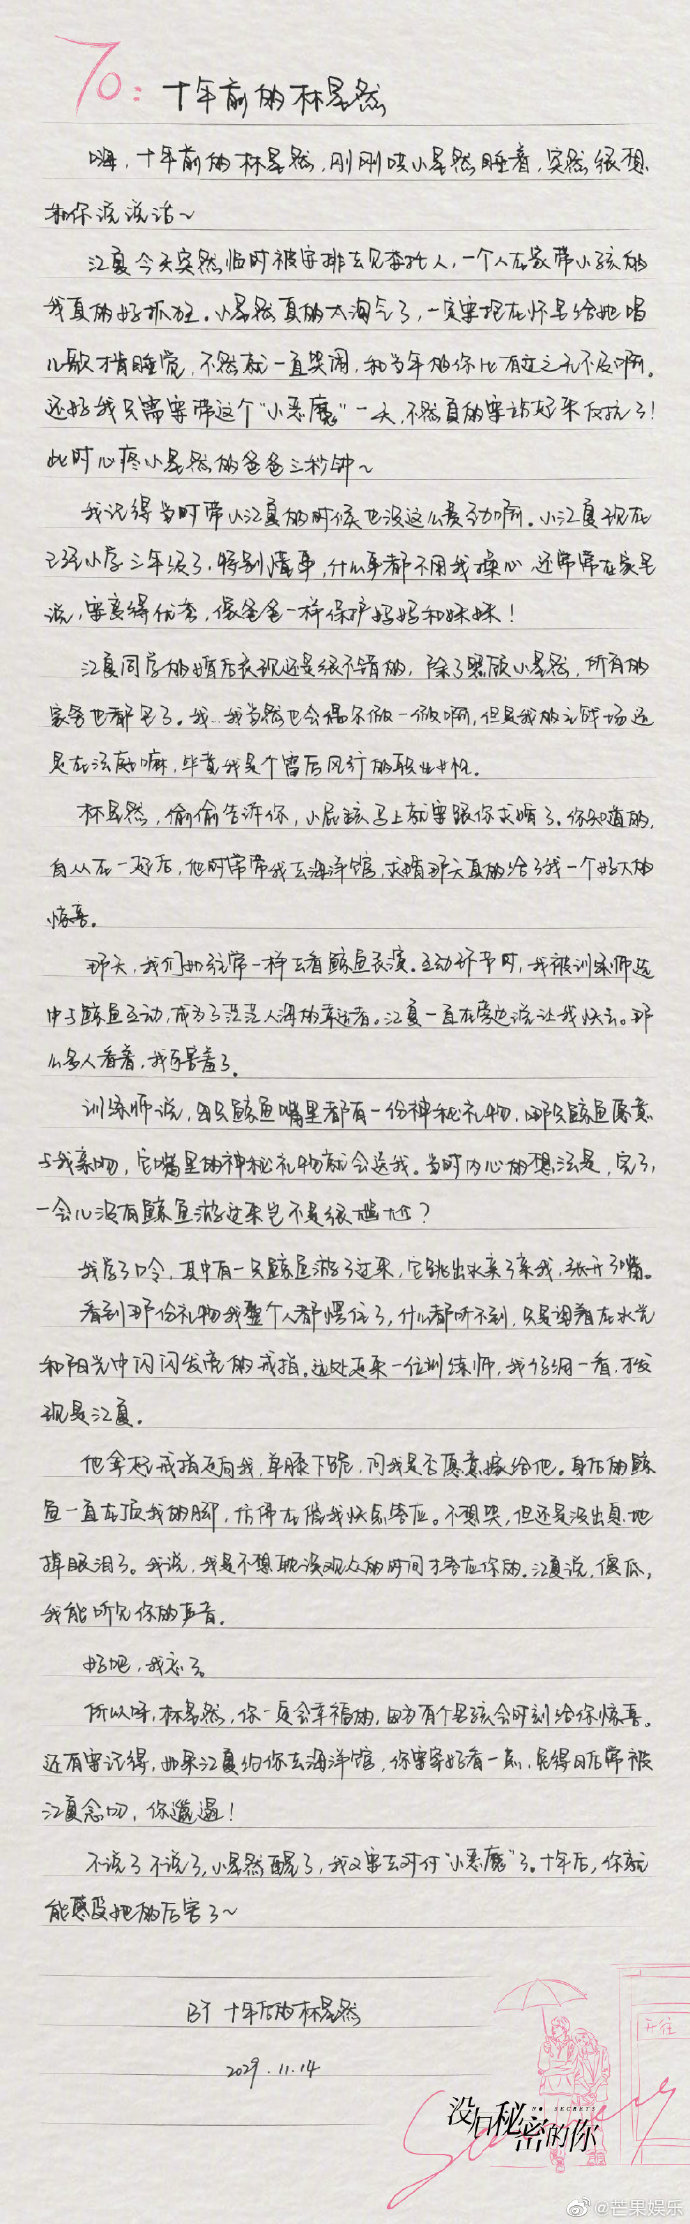 To: 十年前的林星然
嗨，十年前的林星然，刚刚哄小星然睡着，突然很想
和你说说话~
江夏今天突然临时被安排去见委托人，一个人在家带小孩的
我真的好抓狂。小星然真的太淘气了，一定要抱在怀里给她唱
儿歌才肯睡觉，不然就一直哭闹，和当年的你比有过之无不及啊。
还好我只需要带这个“小恶魔”一天，不然真的要站起来反抗了！
此时心疼小星然的爸爸三秒钟~
我记得当时带小江夏的时候也没这么费劲啊。小江夏现在
已经小学三年级了，特别懂事，什么事都不用我操心，还常常在家里
说，要变得优秀，像爸爸一样保护妈妈和妹妹！
江夏同学的婚后表现还是很不错的，除了照顾小星然，所有的
家务也都包了。我…我当然也会偶尔做一做啊，但是我的主战场还
是在法庭嘛，毕竟我是个雷厉风行的职业女性。
林星然，偷偷告诉你，小屁孩马上就要跟你求婚了。你知道的，
自从在一起后，他时常带我去海洋馆，求婚那天真的给了我一个好大的
惊喜。
那天，我们如往常一样去看鲸鱼表演。互动环节时，我被训练师选
中与鲸鱼互动，成为了茫茫人海的幸运者。江夏一直在旁边说让我快去。那
么多人看着，我可害羞了。
训练师说，每只鲸鱼嘴里都有一份神秘礼物，哪只鲸鱼愿意
与我亲吻，它嘴里的神秘礼物就会送我。当时内心的想法是，完了，
一会儿没有鲸鱼游过来岂不是很尴尬？
我学了口令，其中有一只鲸鱼游了过来，它跳出水亲了亲我，张开了嘴。
看到那份礼物我整个人都愣住了，什么都听不到，只是望着在水光
和阳光中闪闪发亮的戒指。远处走来一位训练师，我仔细一看，才发
现是江夏。
他拿起戒指走向我，单膝下跪，问我是否愿意嫁给他。身后的鲸
鱼一直在顶我的脚，仿佛在催我快点答应。不想哭，但还是没出息地
掉眼泪了。我说，我是不想耽误观众的时间才答应你的。江夏说，傻瓜，
我能听见你的声音。
好吧，我忘了。
所以呀，林星然，你一定会幸福的，因为有个男孩会时刻给你惊喜。
还有要记得，如果江夏约你去海洋馆，你要穿好看一点，免得日后常被
江夏念叨，你邋遢！
不说了不说了，小星然醒了，我又要去对付“小恶魔”了。十年后，你就
能感受她的厉害了~
BY 十年后的林星然
2029.11.14
开往
NO SECRETS
没有秘密的你
@芒果娱乐